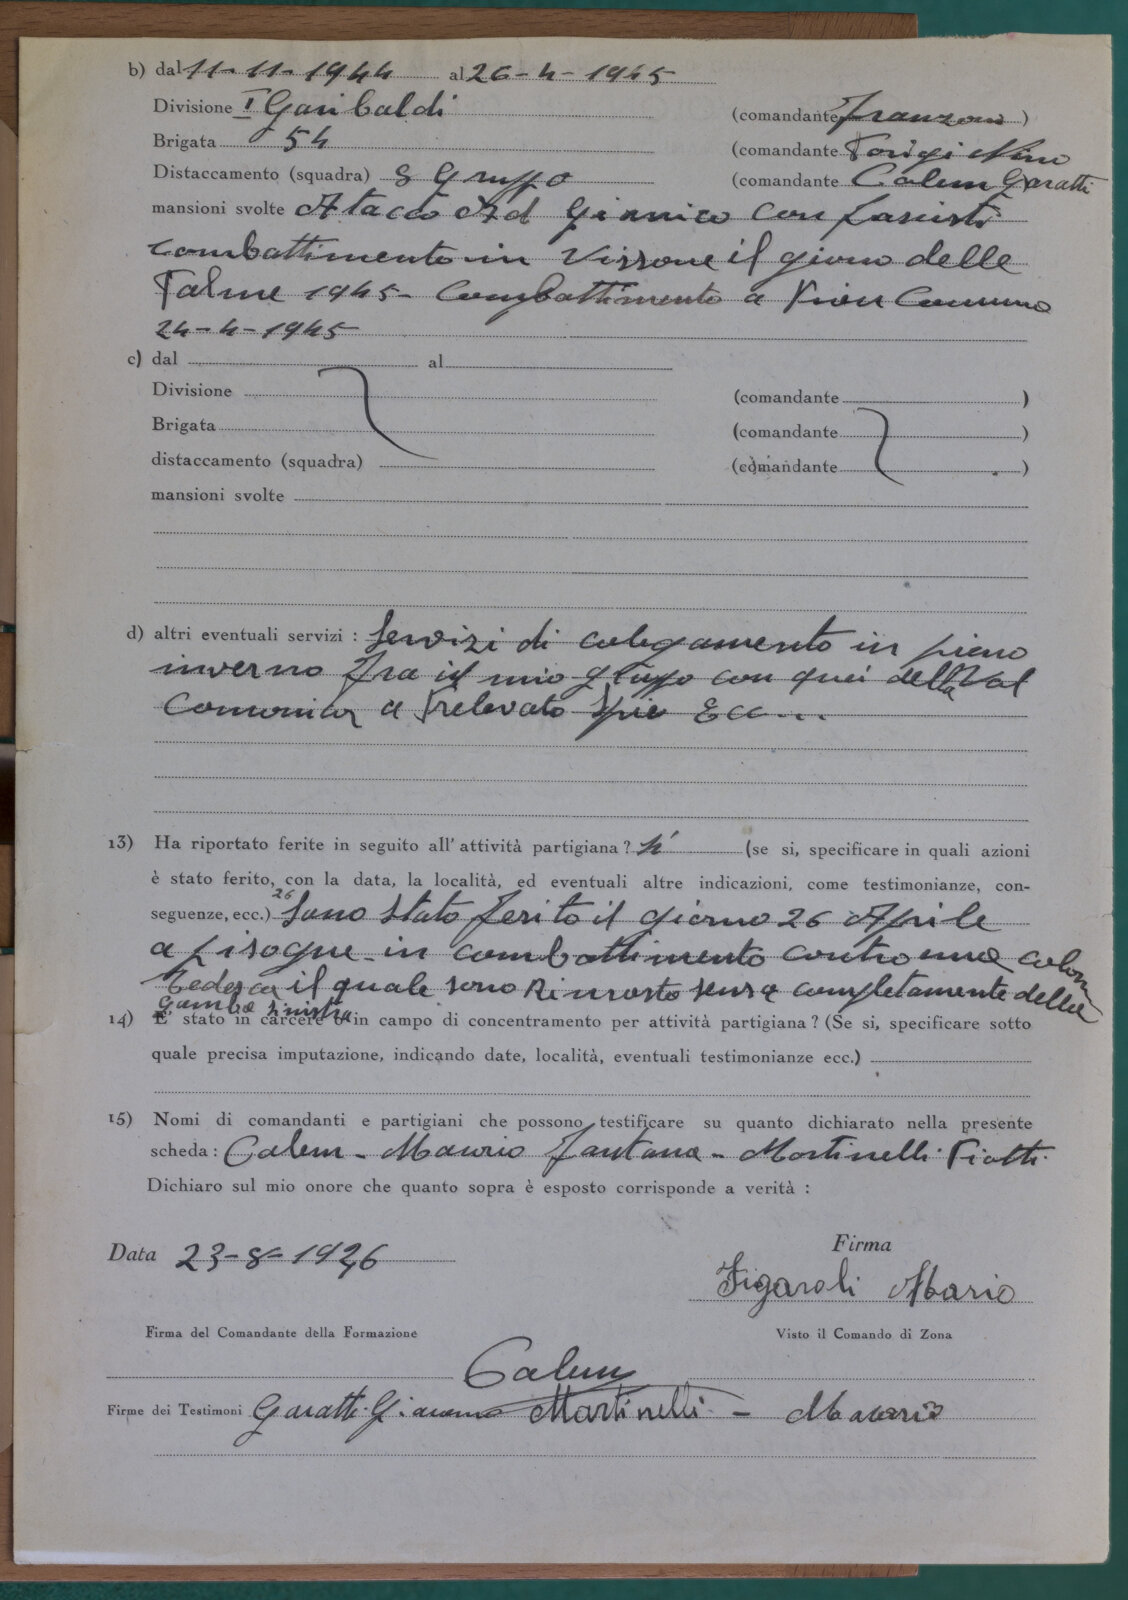 b) dal 11-11-1944 al 26-4-1945
Divisione I Garibaldi (comandante Franzoni)
Brigata 54 (comandante Parigi Nino
Distaccamento (squadra) 8 Gruppo (comandante Calem Garatti
mansioni svolte Atacco Ad Gianico con fascisti
combattimento in Vissone il giorno delle
Palme 1945- Combattimento a Pian Camuno
24-4-1945
c) dal al
Divisione (comandante )
Brigata (comandante )
distaccamento (squadra) (comandante )
mansioni svolte
d) altri eventuali servizi : Servizi di colegamento in pieno
inverno fra il mio gruppo con quei della Val
Comonica a prelevato Spie Ecc...
13) Ha riportato ferite in seguito all' attività partigiana ? si (se si, specificare in quali azioni
è stato ferito, con la data, la località, ed eventuali altre indicazioni, come testimonianze, con-
seguenze, ecc.) 26 Sono stato ferito il giorno 26 Aprile
a pisogne in combattimento contro una colona
Tedesca il quale sono Rimasto senza completamente della
gamba sinistra
14) È stato in carcere o in campo di concentramento per attività partigiana ? (Se si, specificare sotto
quale precisa imputazione, indicando date, località, eventuali testimonianze ecc.)
15) Nomi di comandanti e partigiani che possono testificare su quanto dichiarato nella presente
scheda : Calem - Maurio Fantana - Martinelli Piotti
Dichiaro sul mio onore che quanto sopra è esposto corrisponde a verità :
Data 23-8-1946
Firma
Figaroli Mario
Firma del Comandante della Formazione Visto il Comando di Zona
Calem
Firme dei Testimoni Garatti Giacomo Martinelli -